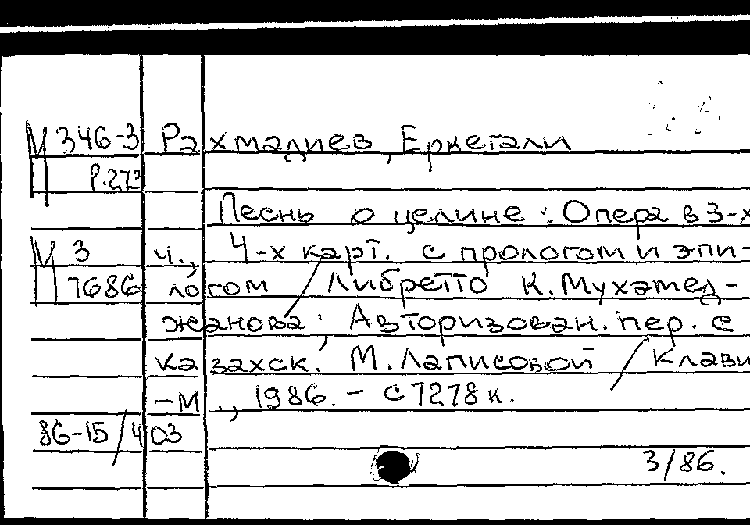 М 346-3 Рахмадиев, Еркегали
Р.273
Песнь о целине: Опера в 3-х
М 3 ч., 4-х карт. с прологом и эпи-
7686 логом / Либретто К. Мухамед-
жанова; Авторизован. пер. с
казахск. М. Лаписовой / Клави
-М., 1986. - С 7278 к.
86-15/403
3/86.